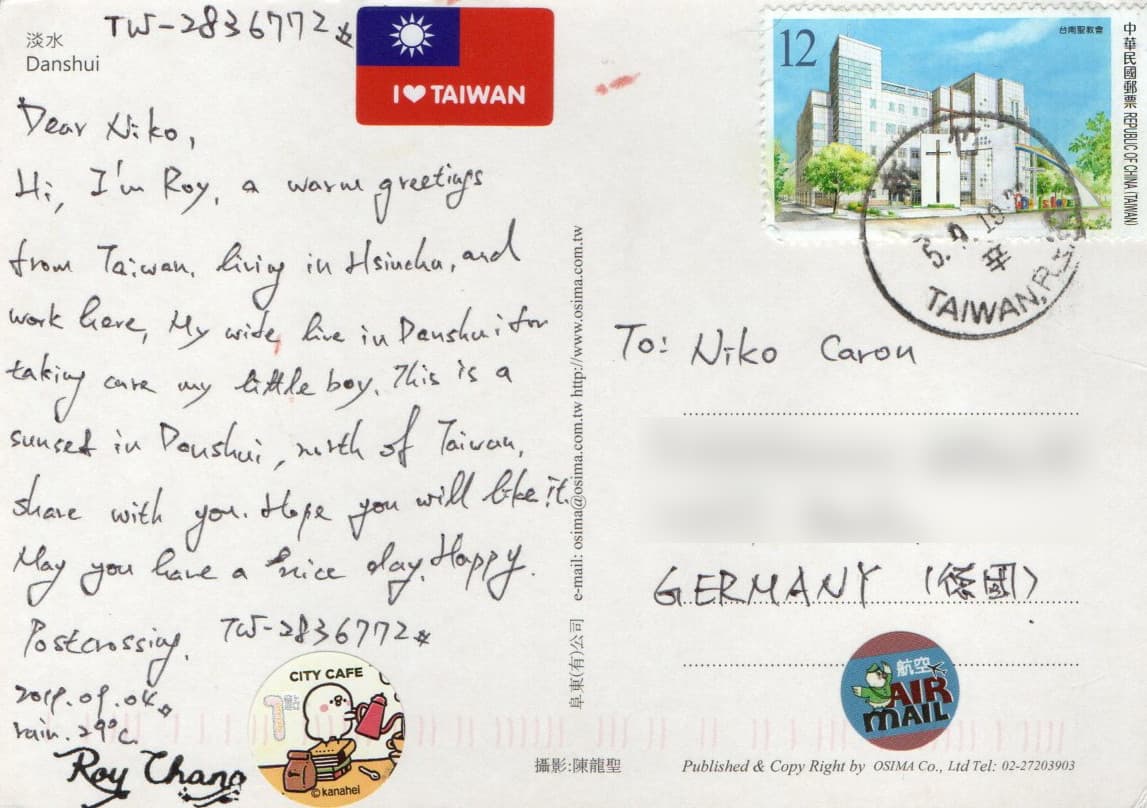 淡水
Danshui
TW-2836772
I ♥ TAIWAN
Dear Niko,
Hi, I'm Roy, a warm greetings
from Taiwan, living in Hsinchu, and
work here, My wide, live in Danshui for
taking care my little boy. This is a
sunset in Danshui, north of Taiwan,
share with you. Hope you will like it.
May you have a nice day. Happy
Postcrossing. TW-2836772
2019.09.04
rain. 29°C
Roy Chang
CITY CAFE
1點
©kanahei
阜東(有)公司 e-mail: osima@osima.com.tw http://www.osima.com.tw
攝影:陳龍聖
12
台南聖教會
中華民國郵票 REPUBLIC OF CHINA (TAIWAN)
5. 9. 19
TAIWAN, R.O.C.
To: Niko Caron
GERMANY (德國)
航空
AIR
MAIL
Published & Copy Right by OSIMA Co., Ltd Tel: 02-27203903